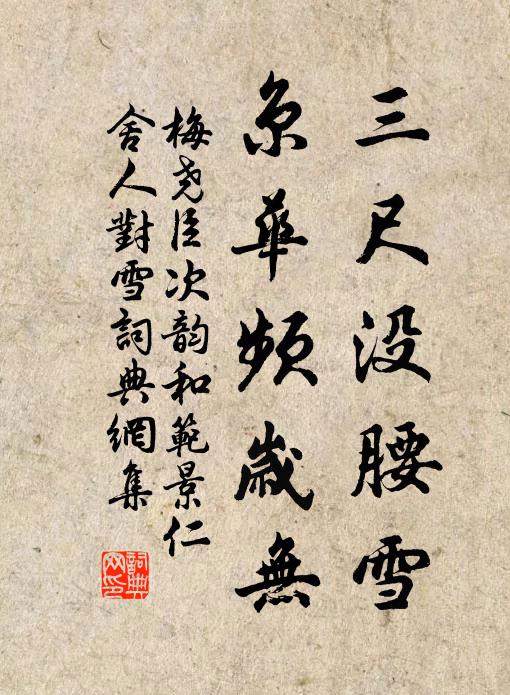 三尺没腰雪
京華頻歲無
梅堯臣次韵和範景仁
舍人對雪詞典網集
詞典
网印